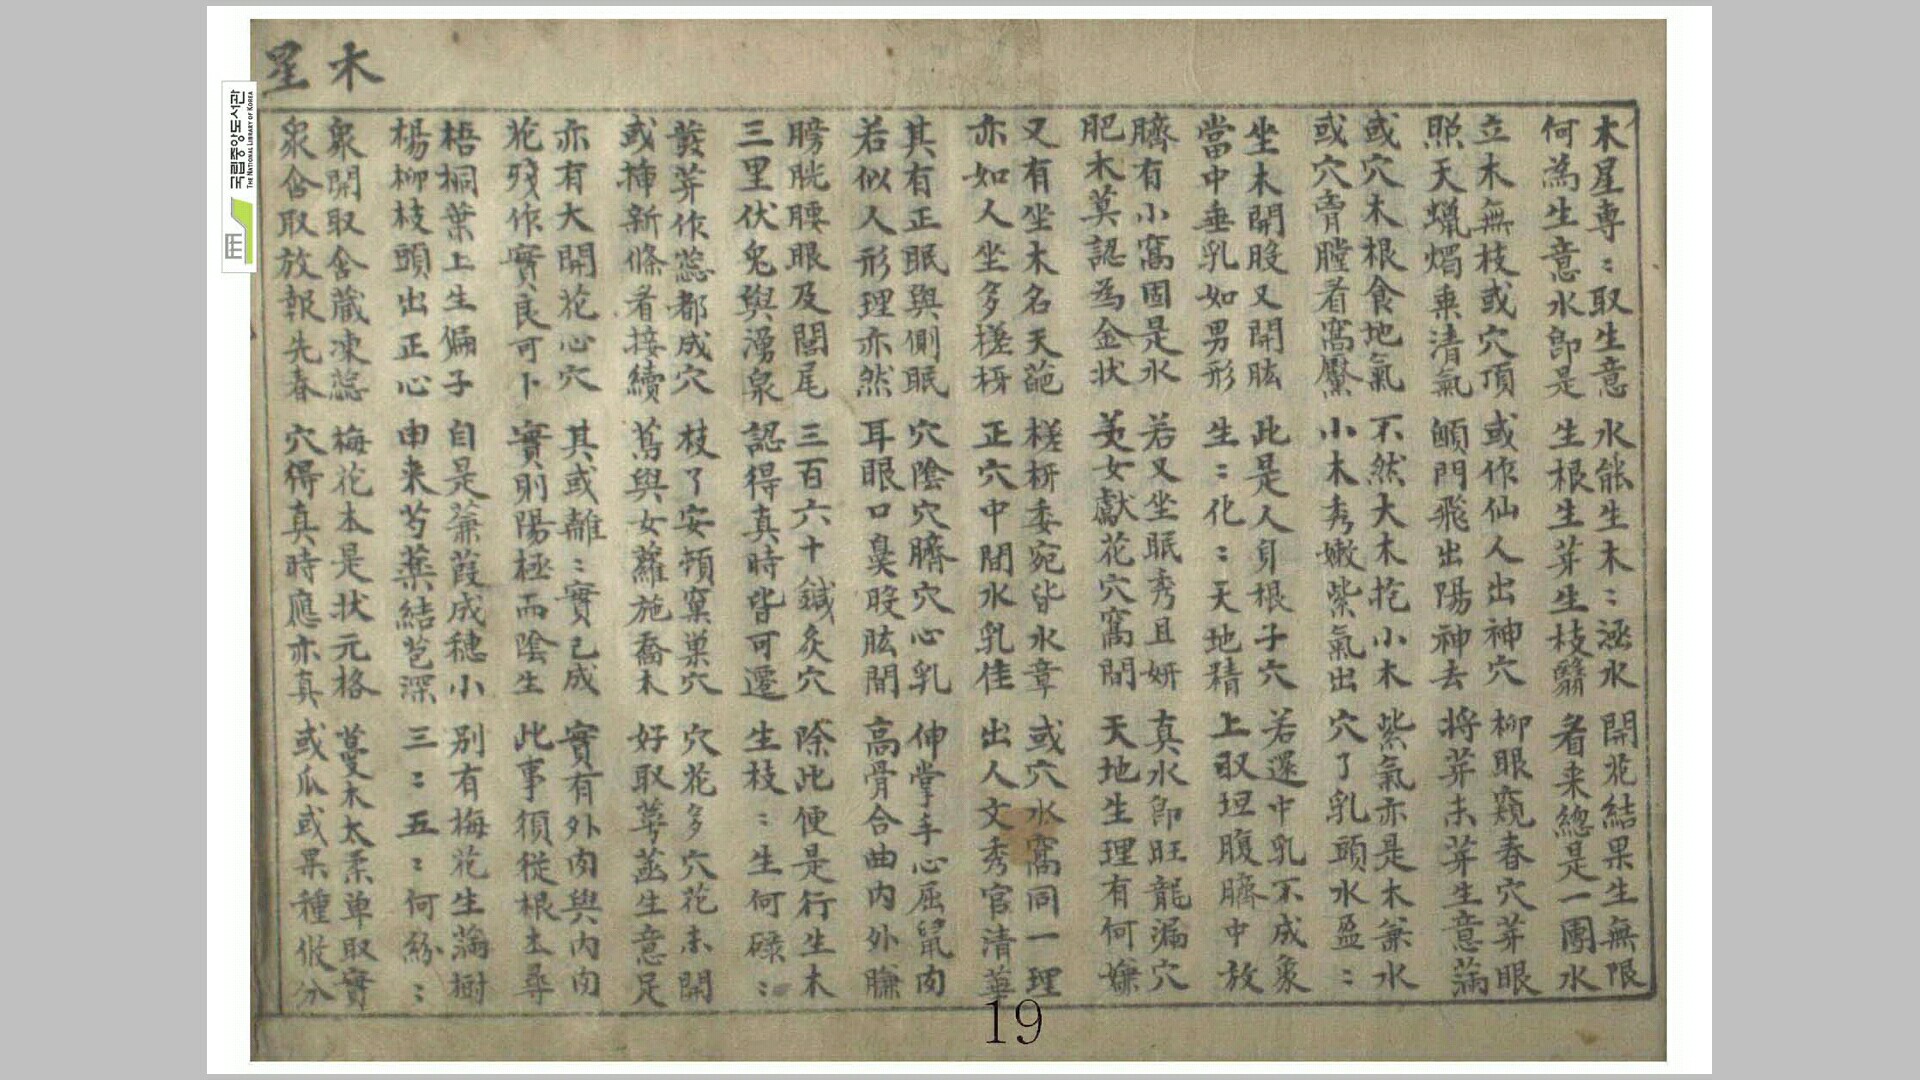 木星
木星專〻取生意 水能生木〻涵水 開花結果生無限
何為生意水即是 生根生芽生枝翳 看来總是一團水
立木無枝或穴頂 或作仙人出神穴 柳眼窺春穴芽眼
照天蠟燭乗清氣 門飛出陽神去 將芽未芽生意滿
或穴木根食地氣 不然大木抱小木 紫氣亦是木兼水
或穴膛着窩黶 小木秀嫩紫氣出 穴了乳頭水盈〻
坐木開股又開肱 此是人身根子穴 若還中乳不成象
當中垂乳如男形 生〻化〻天地精 上取坦腹臍中放
臍有小窩固是水 若又坐眠秀且妍 真水即旺龍漏穴
肥木莫認為金状 美女獻花穴窩間 天地生理有何嫌
又有坐木名天葩 槎枒委宛皆水章 或穴水窩同一理
亦如人坐多槎枒 正穴中間水乳佳 出人文秀官清華
其有正眠與側眠 穴陰穴臍穴心乳 伸掌手心屈鼠肉
若似人形理亦然 耳眼口鼻股肱間 高骨合曲内外臁
膀胱腰眼及閭尾 三百六十鍼灸穴 除此便是行生木
三里伏兔與湧泉 認得真時皆可遷 生枝〻生何碌〻
發芽作蕊都成穴 枝了安頓窠巢穴 穴花多穴花未開
或揷新條看接續 蔦與女蘿施喬木 好取萼蕋生意足
亦有大開花心穴 其或離〻實已成 實有外肉與内肉
花殘作實良可卜 實則陽極而陰生 此事須從根上尋
梧桐葉上生偏子 自是蒹葭成穗小 別有梅花生滿樹
楊柳枝頭出正心 由来芍薬結苞深 三〻五〻何紛〻
衆開取含藏凍蕊 梅花本是状元格 蔓木太柔單取實
衆含取放報先春 穴得真時應亦真 或瓜或果種俻分
19
국립중앙도서관
THE NATIONAL LIBRARY OF KOREA